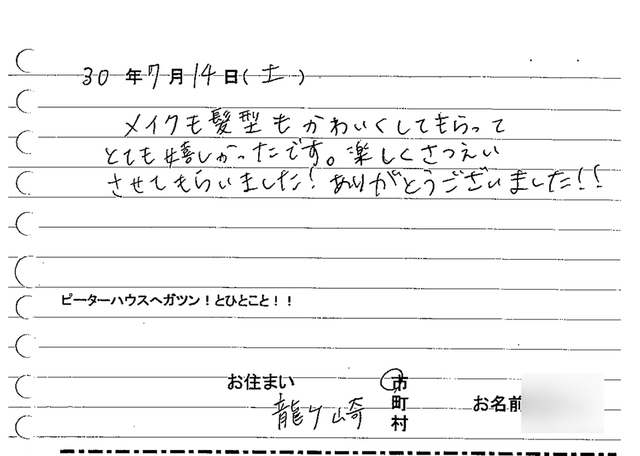 30 年 7 月 14 日(土)
メイクも髪型もかわいくしてもらって
とても嬉しかったです。楽しくさつえい
させてもらいました!ありがとうございました!!
ピーターハウスへガツン!とひとこと!!
お住まい 龍ケ崎 市 お名前
町
村